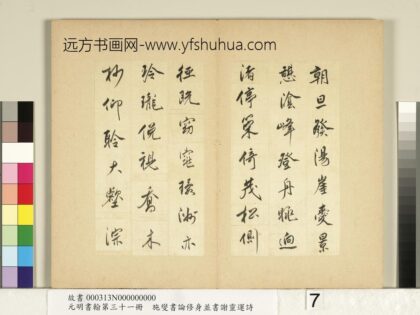 远方书画网-www.yfshuhua.com
朝旦發陽崖景
憩陰峰登舟眺迥
渚停策倚茂松側
徑既窈窕環洲亦
玲瓏俛視喬木
杪仰聆大壑淙
故書 000313N000000000
元明書翰第三十一冊 施燮書論修身並書謝靈運詩
7